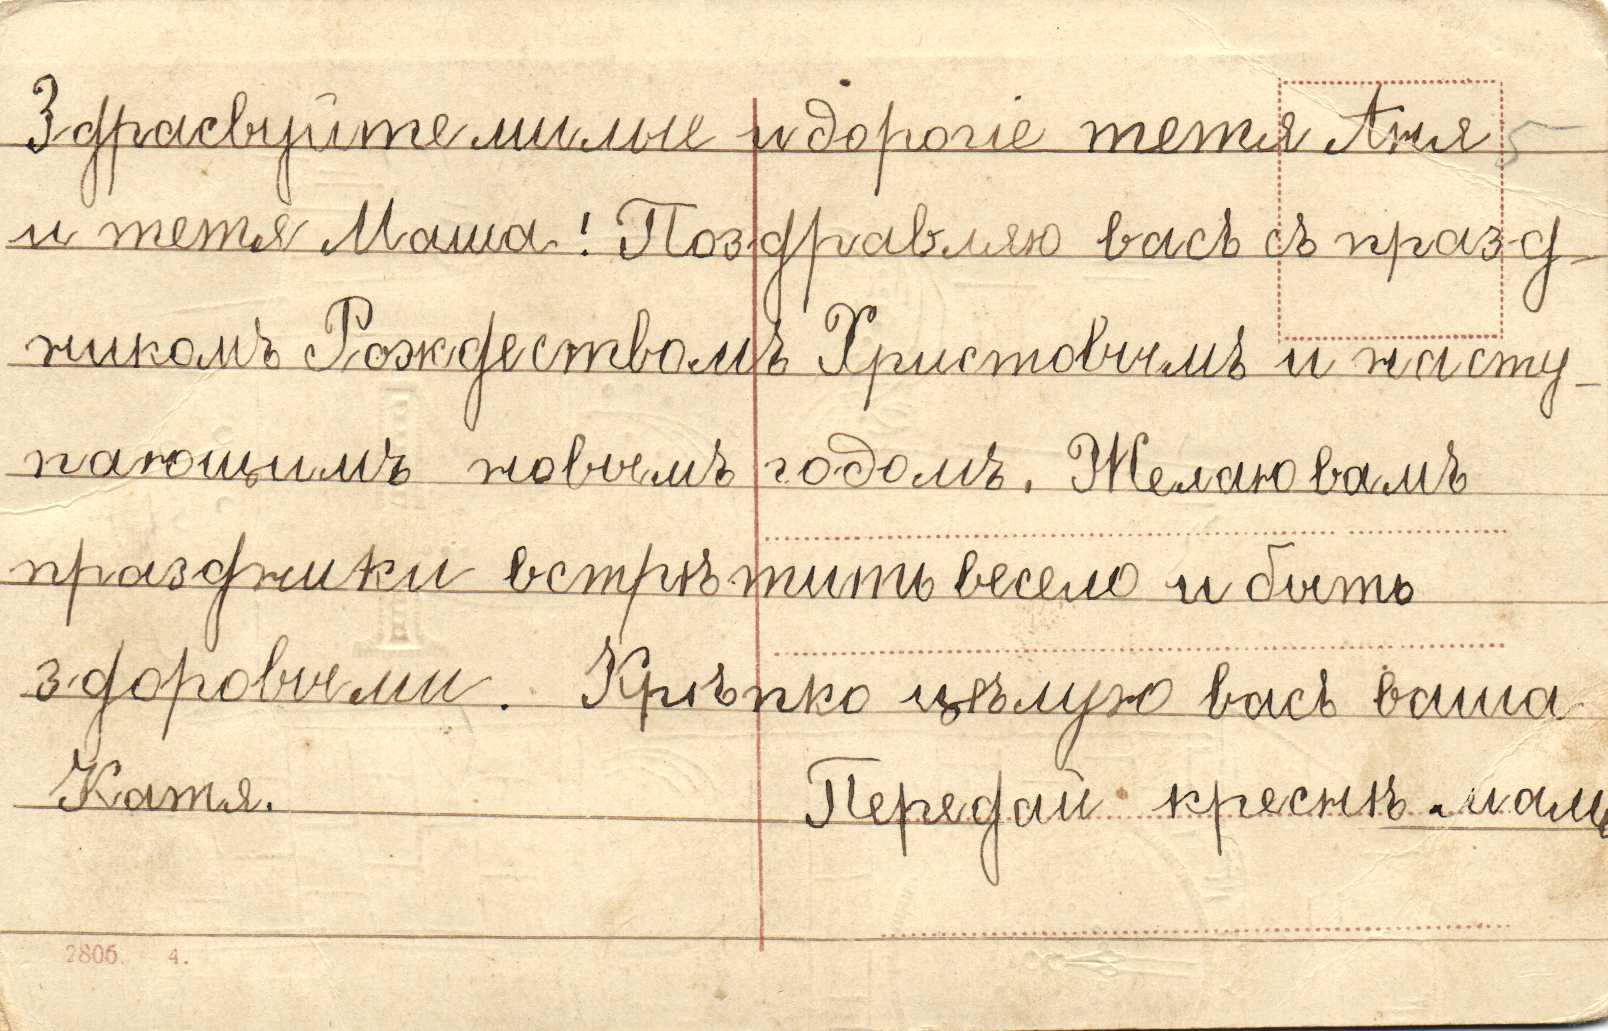 Здрасвуйте милые и дорогіе тетя Аня 5
и тетя Маша! Поздравляю васъ съ празд-
никомъ Рождествомъ Христовымъ и насту-
пающимъ новымъ годомъ. Желаю вамъ
праздники встрѣтить весело и быть
здоровыми. Крѣпко цѣлую васъ ваша
Катя. Передай креснѣ.мамѣ
2806. 4.